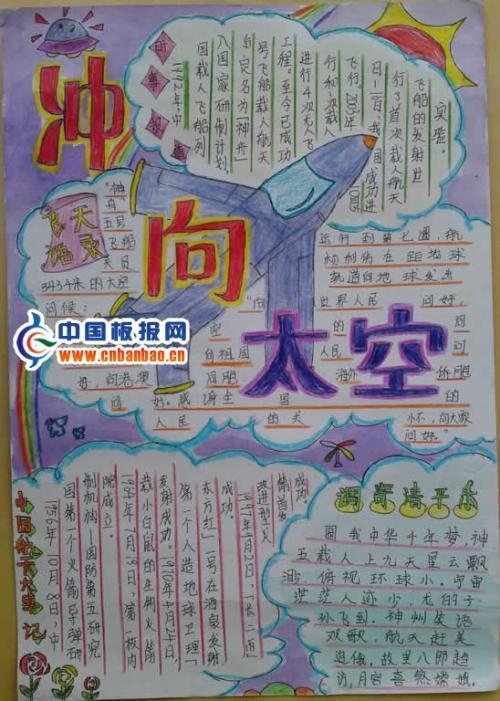 冲
向
太空
时事报道
1992年,中
国载人飞船列
入国家研制计划,
自定名为"神舟"
号飞船载人航天
工程。至今已成功
进行4次无人飞
行和1次载人
飞行。2003年
日—11日,我国成功进
行了首次载人航天
飞船的发射进
实验。
飞天
语录
"神
舟"五号
飞船
天员
343千米的太空
问候:
"向
空
向祖国
同胞
世界人民
问好,
的
同
人民
问
海外
侨胞
向港澳
问
好。感
湾
人民
的关
国
怀,向大家
问好。"
运行到第七圈,航
杨利伟在距地球
轨道向地球发出
中国板报网
www.cnbanbao.cn
中国航天大事记
1956年10月8日,中
国第一个火箭导弹研
制机构—国防第五研究
院成立。
1964年7月19日,第一枚内
载小白鼠的生物火箭
发射成功。1970年4月24日,
第一个人造地球卫星"
东方红"一号在酒泉发射
成功。
1997年9月2日,"长二丙"
改进型火
箭首发
成功。
调寄清平乐
圆我中华千年梦,神
五载人上九天星云飘
渺,俯视环球小。宇宙
茫茫人迹少,龙的子
孙飞到。神州笑语
双歌,航天赶美
追俄,故里八郎趋
访,月宫喜煞嫦娥。